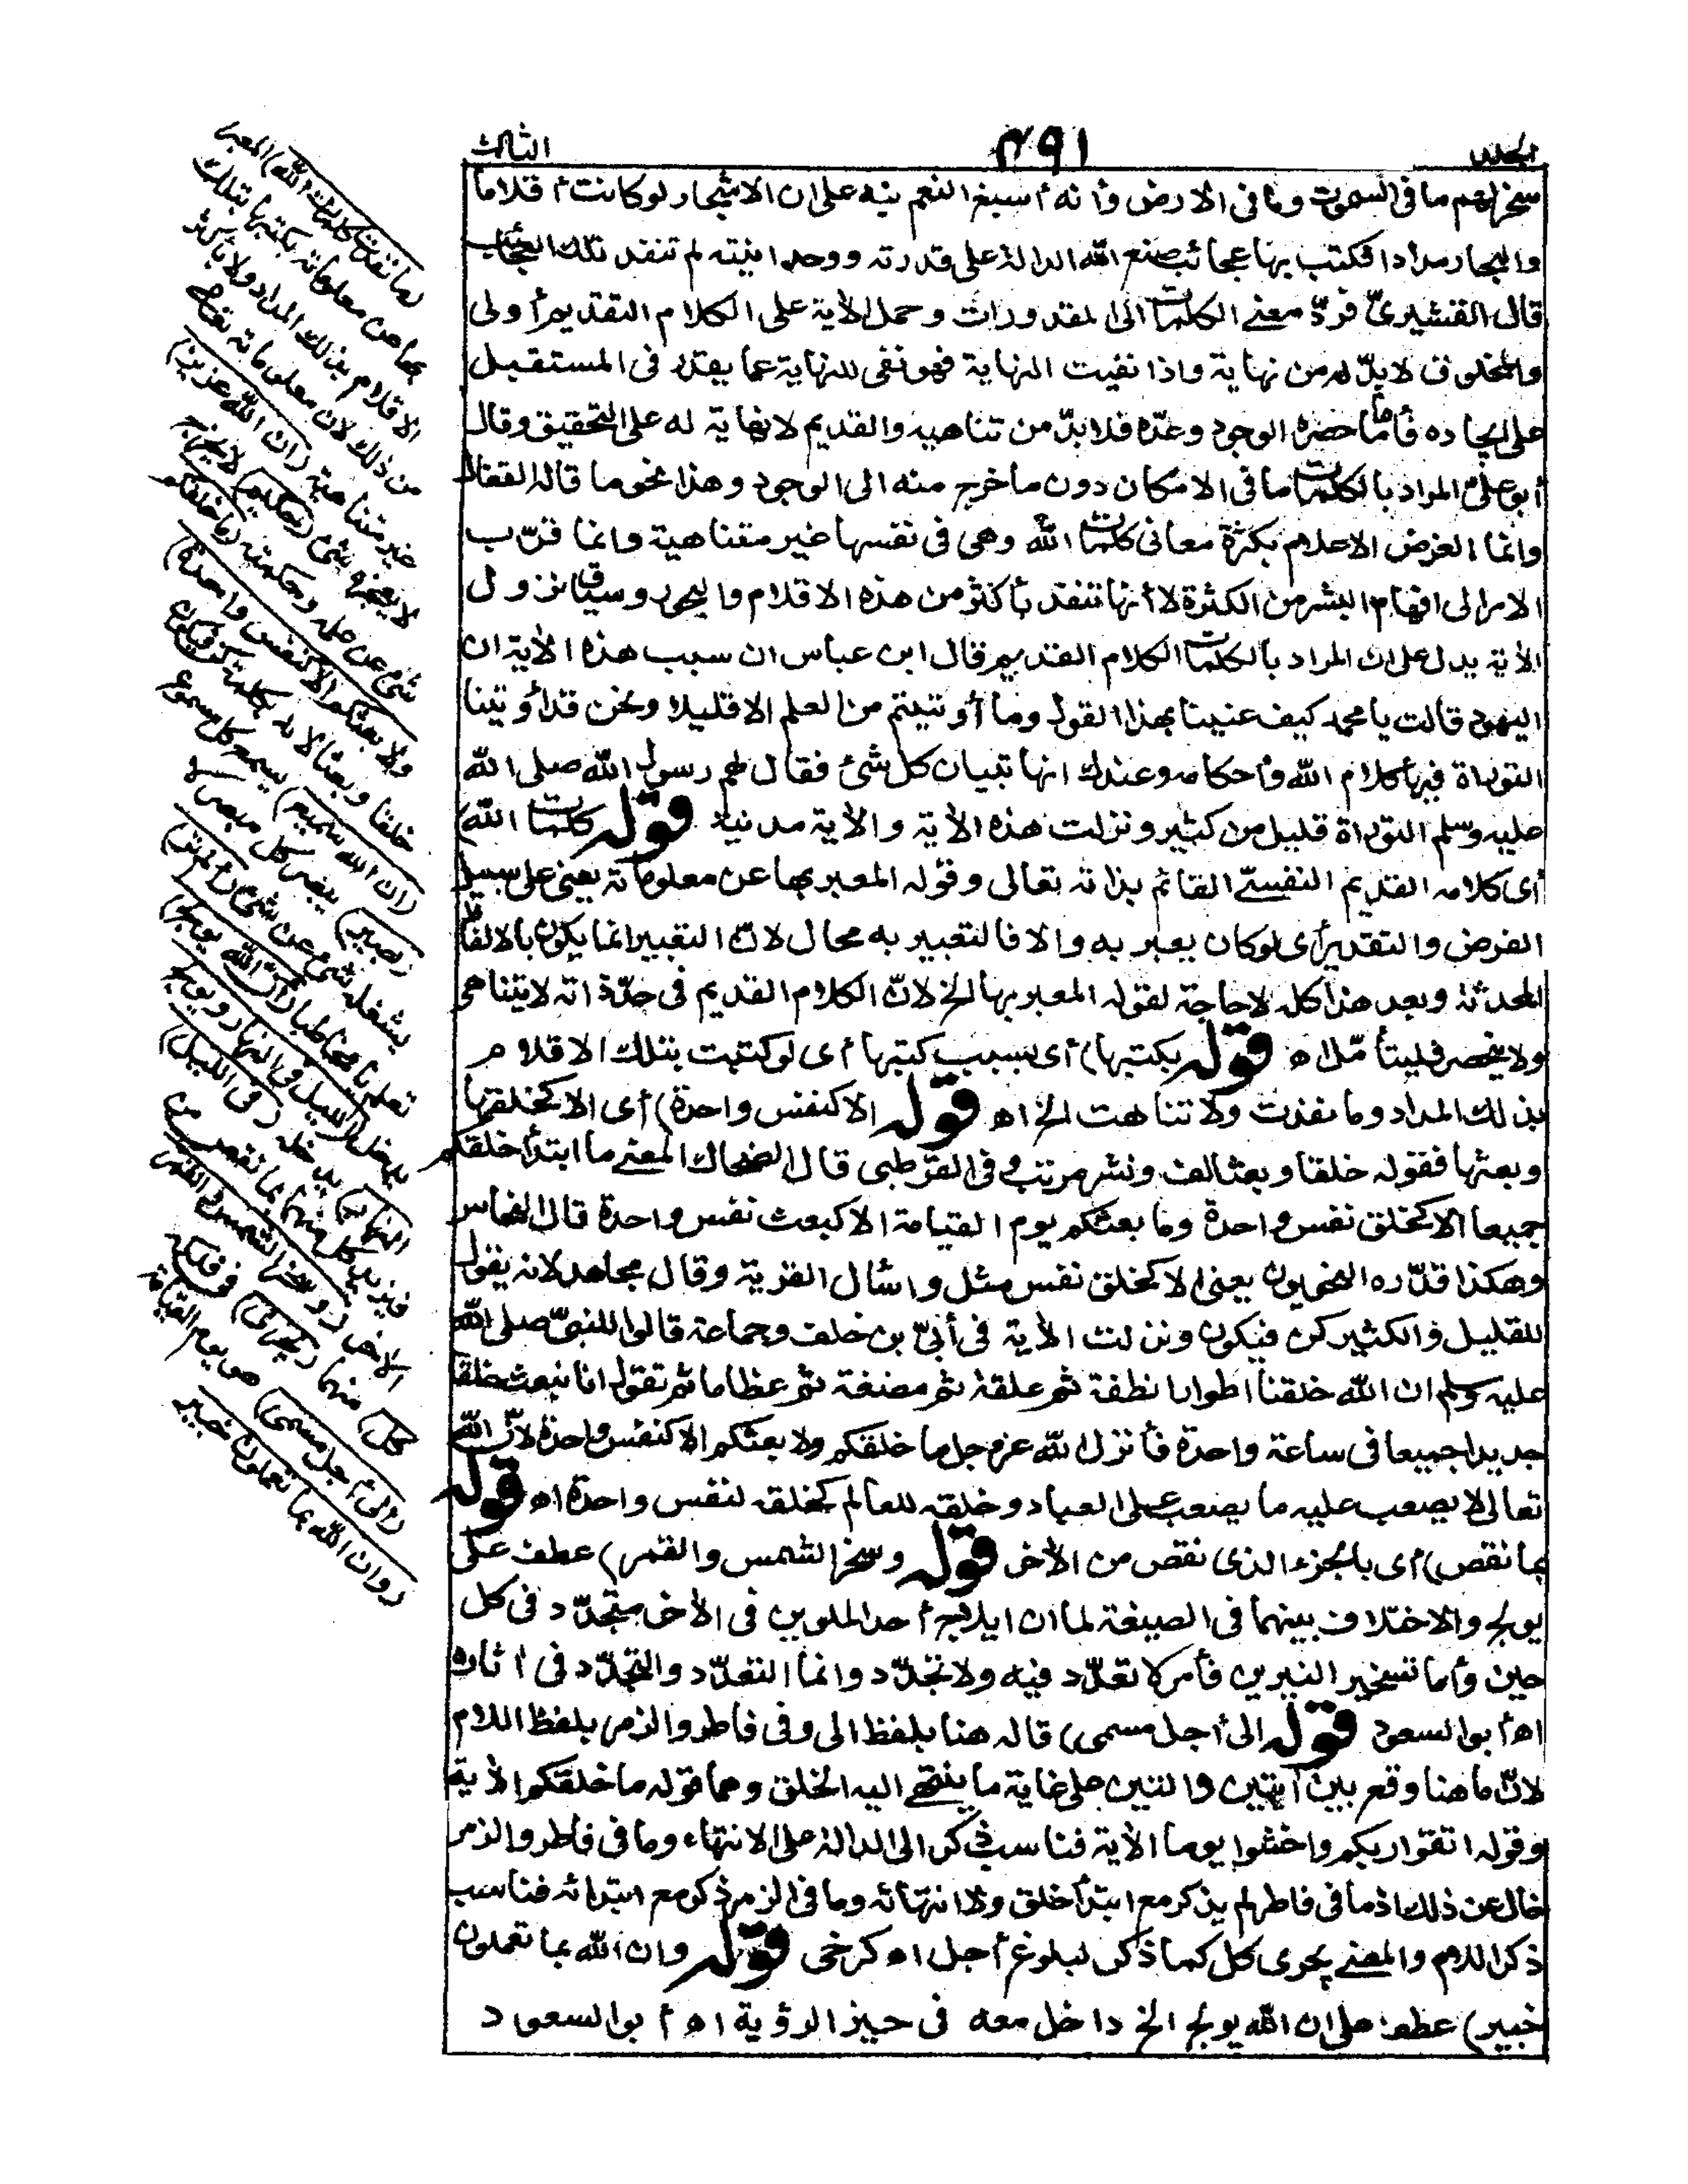 الجلد
٤٩١
الثالث
سخر لهم ما فى السموت وما فى الارض وأنه أسبغ النعم نبه على ان الاشجار لو كانت أقلاما
والبحار مدادا فكتب بها عجائب صنع الله الدالة على قدرته ووحدانيته لم تنفد تلك العجائب
قال القشيرىّ فردّ معنى الكلمات الى المقدورات وحمل الأية على الكلام القديم أولى
والمخلوق لا بدّ له من نهاية واذا نفيت النهاية فهو نفى للنهاية عما يقدر فى المستقبل
على ايجاده فأما ما حضره الوجود وعدّه فلا بدّ من تناهيه والقديم لا نهاية له على التحقيق وقال
أبو على المراد بالكلمات ما فى الامكان دون ما خرج منه الى الوجود وهذا نحو ما قاله القفال
وانما الغرض الاعلام بكثرة معانى كلمات الله وهى فى نفسها غير متناهية وانما قرّب
الامر الى افهام البشر من الكثرة لا أنها تنفد بأكثر من هذه الاقلام والبحور وسياق نزول
الأية يدل على ان المراد بالكلمات الكلام القديم قال ابن عباس ان سبب هذه الأية ان
اليهود قالت يا محمد كيف عنينا بهذا القول وما أوتيتم من العلم الا قليلا ونحن قد أوتينا
التوراة فيها كلام الله وأحكامه وعندك انها تبيان كل شئ فقال لهم رسول الله صلى الله
عليه وسلم التوراة قليل من كثير ونزلت هذه الأية والأية مدنية قوله كلمات الله)
أى كلامه القديم النفسىّ القائم بذاته تعالى وقوله المعبر بها عن معلوماته يعنى على سبيل
الفرض والتقدير أى لو كان يعبر به والا فالتعبير به محال لانّ التعبير انما يكون بالالفاظ
المحدثة وبعد هذا كله لا حاجة لقوله المعبر بها الخ لانّ الكلام القديم فى حدّ ذاته لا يتناهى
ولا ينحصر فليتأمّل اه قوله بكتبها) أى بسبب كتبها أى لو كتبت بتلك الاقلام
بذلك المداد وما نفذت ولا تناهت الخ اه قوله الا كنفس واحدة) أى الا كخلقها
وبعثها فقوله خلقا وبعثا لف ونشر مرتب وفى القرطبى قال الضحاك المعنى ما ابتدأ خلقكم
جميعا الا كخلق نفس واحدة وما بعثكم يوم القيامة الا كبعث نفس واحدة قال النحاس
وهكذا قدّره النحويون يعنى الا كخلق نفس مثل واسأل القرية وقال مجاهد لانه يقول
للقليل والكثير كن فيكون ونزلت الأية فى أبىّ بن خلف وجماعة قالوا للنبىّ صلى الله
عليه وسلم ان الله خلقنا اطوارا نطفة ثم علقة ثم مضغة ثم عظاما ثم تقول انا نبعث خلقا
جديدا جميعا فى ساعة واحدة فأنزل الله عز وجل ما خلقكم ولا بعثكم الا كنفس واحدة لانّ الله
تعالى لا يصعب عليه ما يصعب على العباد وخلقه للعالم كخلقه لنفس واحدة اه قوله
بما نقص) أى بالجزء الذى نقص من الأخر قوله وسخر الشمس والقمر) عطف على
يولج والاختلاف بينهما فى الصيغة لما ان ايلاج أحد الملوين فى الأخر متجدّد فى كل
حين وأما تسخير النيرين فأمر لا تعدّد فيه ولا تجدّد وانما التعدّد والتجدّد فى اثاره
اه أبو السعود قوله الى أجل مسمى) قاله هنا بلفظ الى وفى فاطر والزمر بلفظ اللام
لانّ ما هنا وقع بين أيتين دالتين على غاية ما ينتهى اليه الخلق وهما قوله ما خلقكم الأية
وقوله اتقوا ربكم واخشوا يوما الأية فناسب ذكر الى الدالة على الانتهاء وما فى فاطر والزمر
خال عن ذلك اذ ما فى فاطر لم يذكر مع ابتدأ خلق ولا انتهائه وما فى الزمر ذكر مع ابتدائه فناسب
ذكر اللام والمعنى يجرى كل كما ذكر لبلوغ أجل اه كرخى قوله وان الله بما تعملون
خبير) عطف على ان الله يولج الخ داخل معه فى حيز الرؤية اه أبو السعود
(ما نفدت كلمات الله) المعبر
بها عن معلوماته بكتبها بتلك
الاقلام بذلك المداد ولا بأكثر
من ذلك لان معلوماته تعالى
غير متناهية (ان الله عزيز)
لا يعجزه شئ (حكيم) لا يخرج
شئ عن علمه وحكمته (ما خلقكم
ولا بعثكم الا كنفس واحدة)
خلقا وبعثا لانه بكلمة كن فيكون
(ان الله سميع) يسمع كل مسموع
(بصير) يبصر كل مبصر لا
يشغله شئ عن شئ (ألم تر)
تعلم يا مخاطبا (ان الله يولج)
يدخل (الليل فى النهار ويولج
النهار) يدخله (فى الليل)
فيزيد كل منهما بما نقص من
الاخر (وسخر الشمس والقمر
كل) منهما (يجرى) فى فلكه
(الى أجل مسمى) هو يوم القيامة
(وان الله بما تعملون خبير